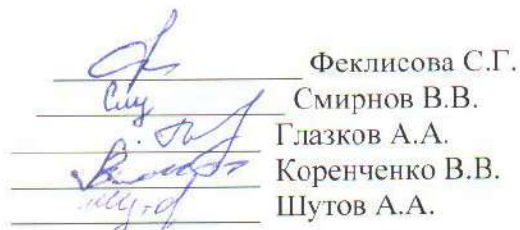 Феклисова С.Г.
Смирнов В.В.
Глазков А.А.
Коренченко В.В.
Шутов А.А.